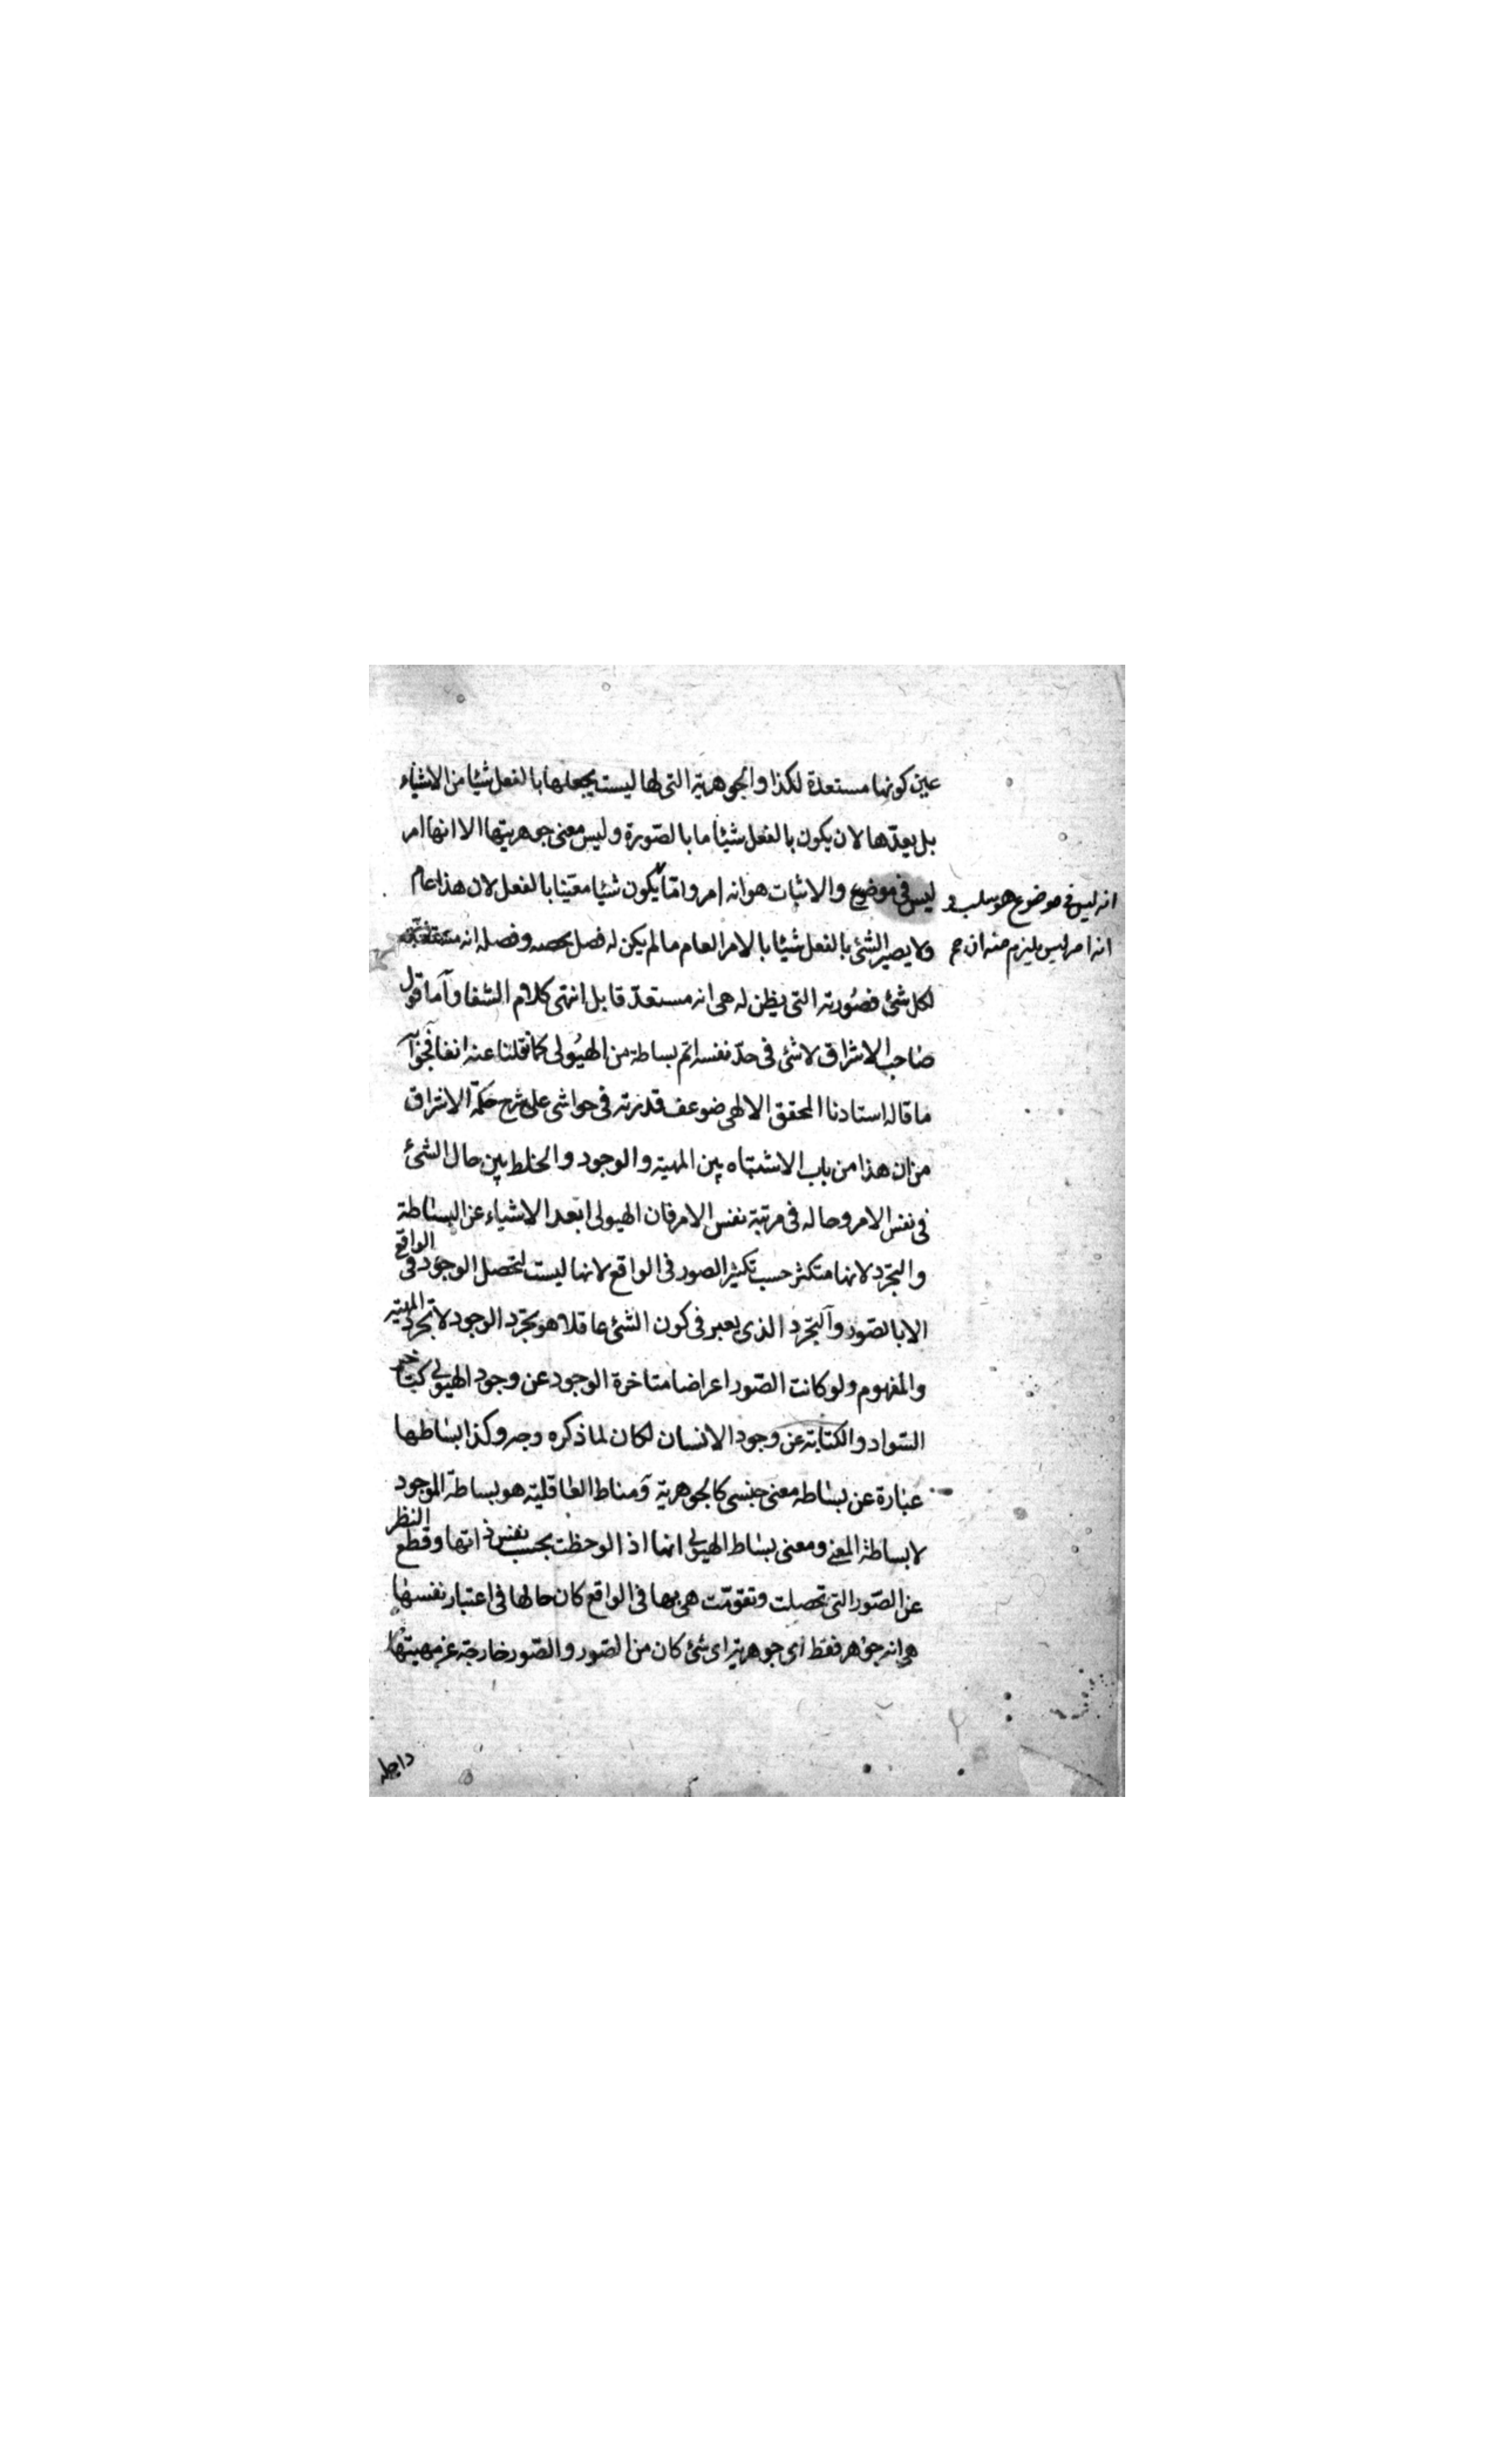 عين كونها مستعدة لكذا والجوهرية التى لها ليست يجعلها بالفعل شيئا من الاشياء
بل يعدّها لان يكون بالفعل شيئا ما بالصّورة وليس معنى جوهريتها الا انها امر
ليس فى موضوع والاثبات هو انه امر واما يكون شيئا معيّنا بالفعل لان هذا عام
انه ليس فى موضوع هو سلب و
انه امر ليس يلزم منه ان
ولا يصير الشئ بالفعل شيئا بالامر العام ما لم يكن له فصل يحصه وفصله انه
لكل شئ فصُورته التى يظن له هى انه مستعدّ قابل انتهى كلام الشفا وآما قول
صاحب الاشراق لا شئ فى حدّ نفسه اتم بساطة من الهيُولى كما نقلنا عنه انفا فجوابه
ما قاله استادنا المحقق الالهى ضوعف قدره فى حواشى على شرح حكمة الاشراق
من ان هذا من باب الاشتباه بين المهية والوجود والخلط بين حال الشئ
فى نفس الامر وحاله فى مرتبة نفس الامر فان الهيولى ابعد الاشياء عن البساطة
والتجرّد لانها متكثر حسب تكثير الصور فى الواقع لانها ليست لتحصل الوجود فى الواقع
الا بالصّور وآلتجرّد الذى يعبر فى كون الشئ عاقلا هو تجرّد الوجود لا تجرّد المهية
والمفهوم ولو كانت الصّور اعراضا متاخرة الوجود عن وجود الهيولى كتاخر
السّواد والكتابة عن وجود الانسان لكان لما ذكره وجه وكذا بساطها
عبارة عن بساطه معنى جنسى كالجوهرية ومناط العاقلية هو بساطة الموجود
لا بساطة المعنى ومعنى بساط الهيولى انها اذا لوحظت بحسب نفس ذاتها وقطع النظر
عن الصّور التى تحصلت وتقوّمت هى بها فى الواقع كان حالها فى اعتبار نفسها
هى انه جوهر فقط اى جوهرية اى شئ كان من الصّور والصّور خارجة عن مهيتها
داخلة